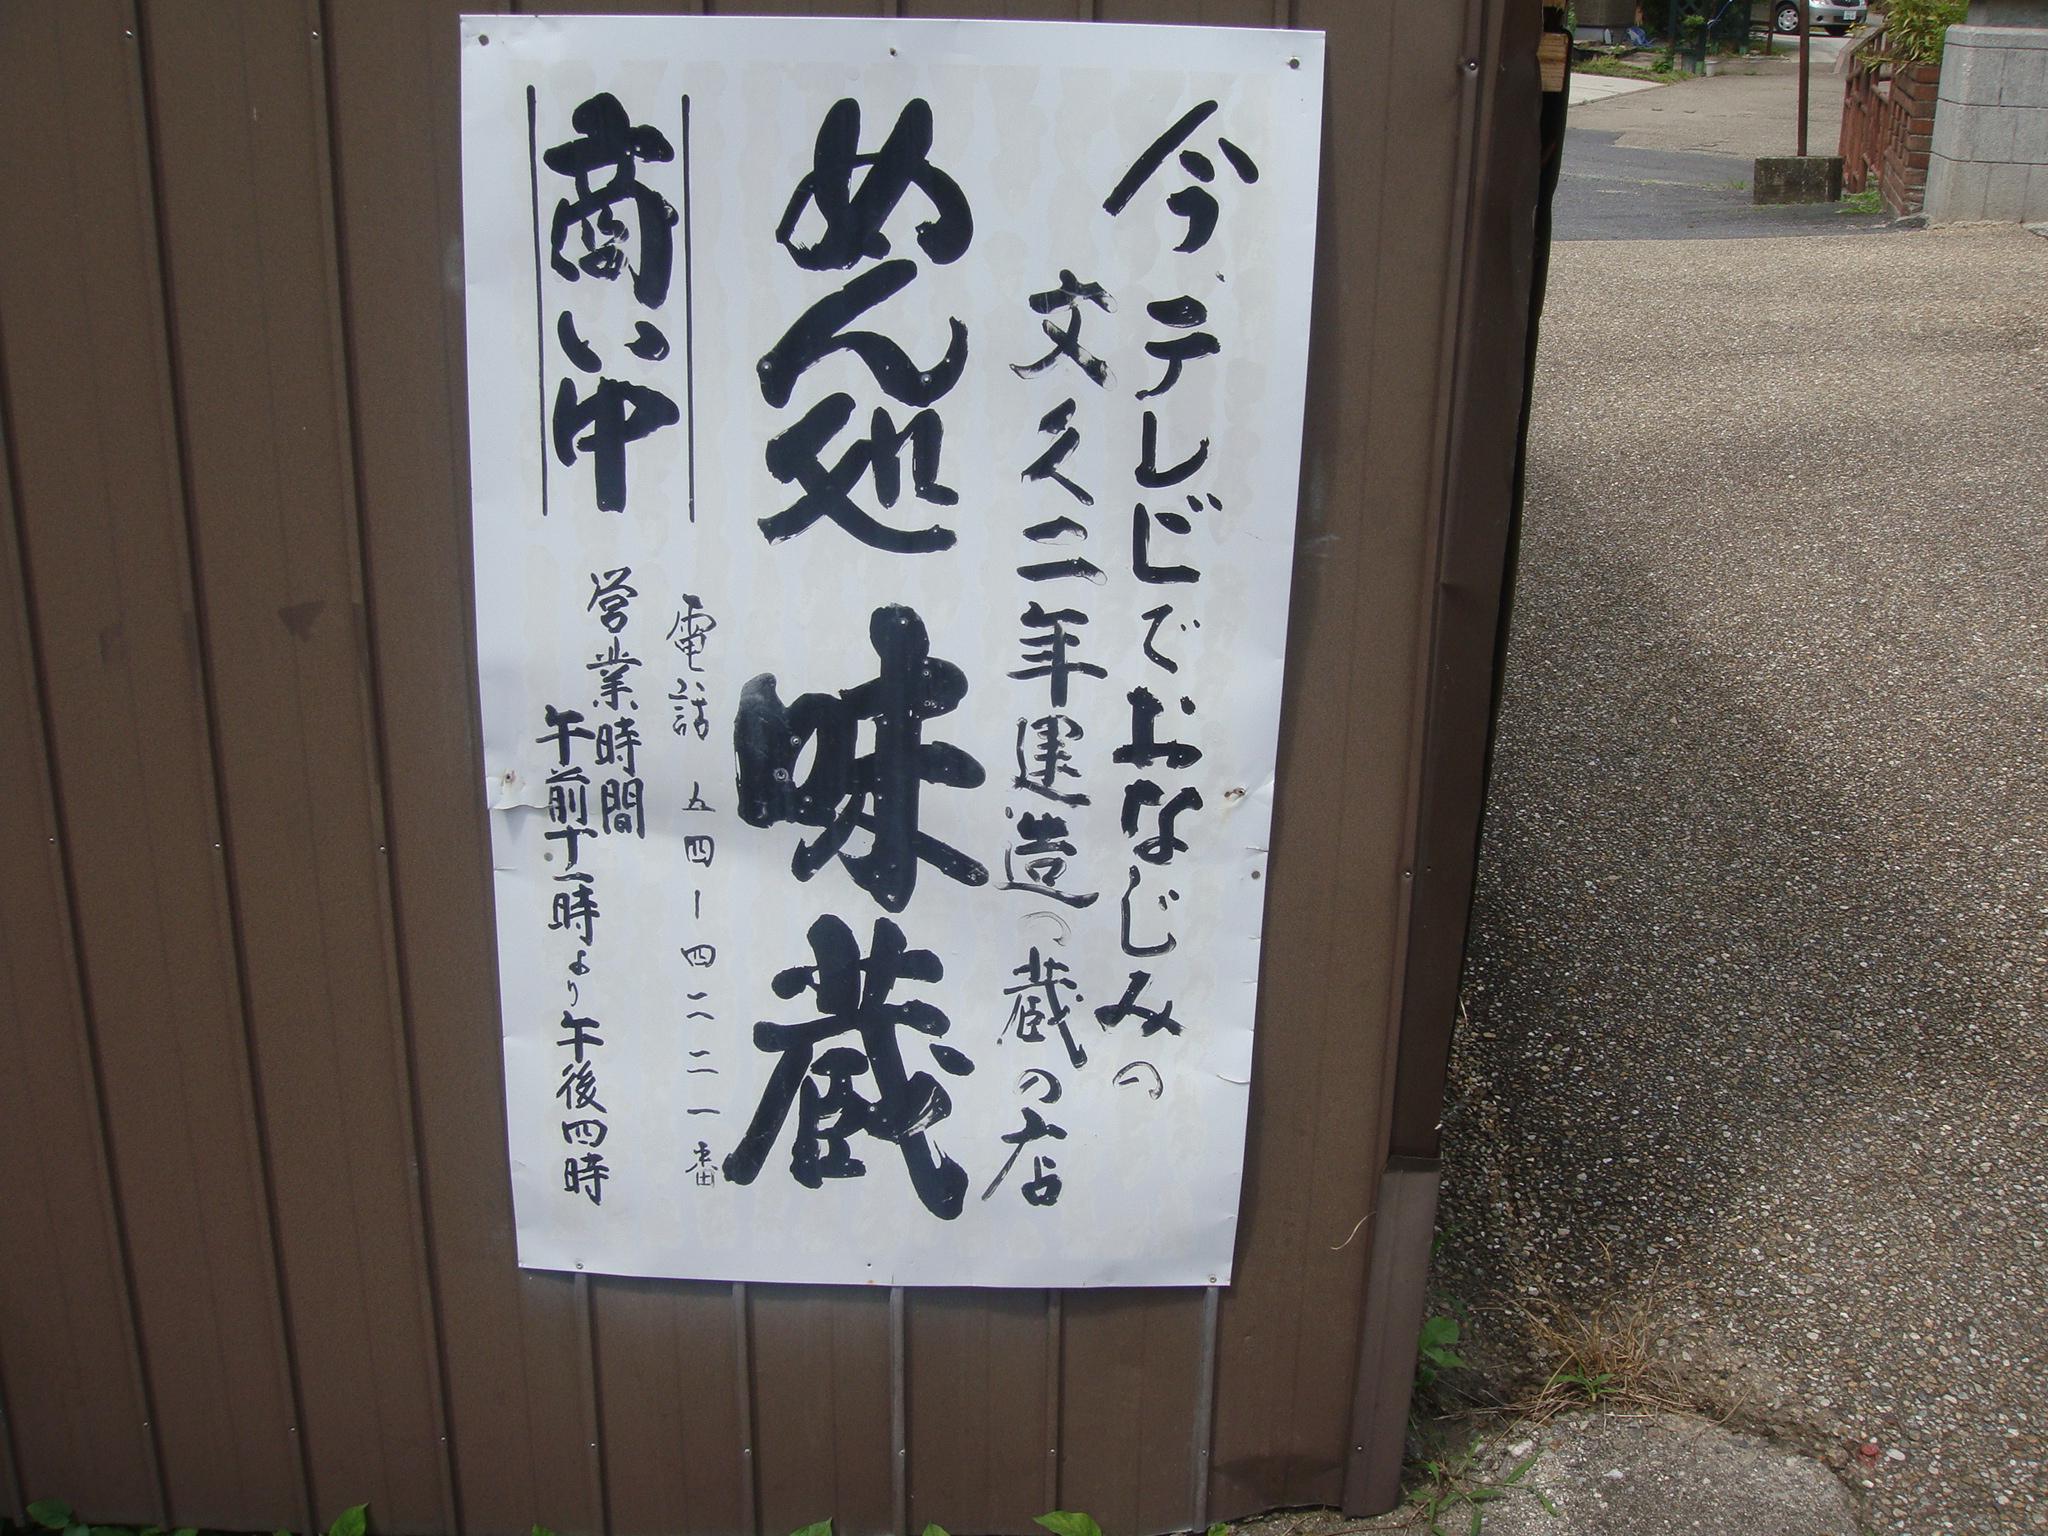 今、テレビでおなじみの
文久二年運造の蔵の店
めん処 味蔵
電話 五四ー四二二一番
商い中
営業時間
午前十一時より午後四時